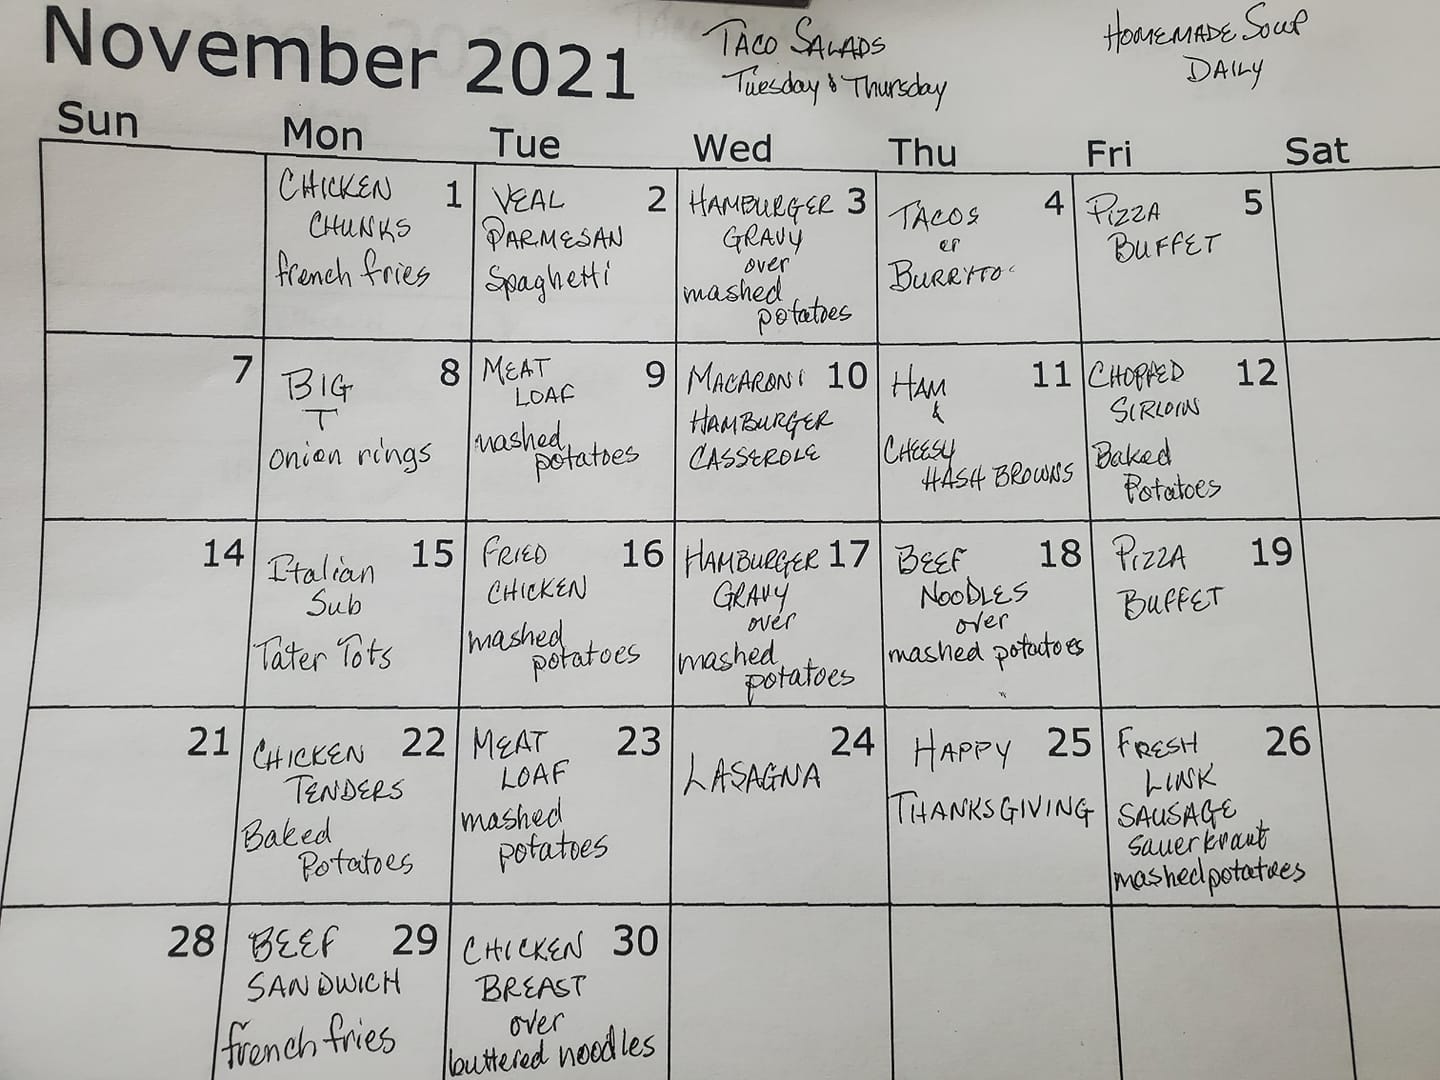 November 2021
TACO SALADS
Tuesday & Thursday
HOMEMADE SOUP
DAILY
Sun Mon Tue Wed Thu Fri Sat
1
CHICKEN
CHUNKS
french fries
2
VEAL
PARMESAN
Spaghetti
3
HAMBURGER
GRAVY
over
mashed
potatoes
4
TACOS
or
BURRITO
5
PIZZA
BUFFET
7
8
BIG
T
onion rings
9
MEAT
LOAF
mashed
potatoes
10
MACARONI
HAMBURGER
CASSEROLE
11
HAM
&
CHEESY
HASH BROWNS
12
CHOPPED
SIRLOIN
Baked
Potatoes
14
15
Italian
Sub
Tater Tots
16
FRIED
CHICKEN
mashed
potatoes
17
HAMBURGER
GRAVY
over
mashed
potatoes
18
BEEF
NOODLES
over
mashed potatoes
19
PIZZA
BUFFET
21
22
CHICKEN
TENDERS
Baked
Potatoes
23
MEAT
LOAF
mashed
potatoes
24
LASAGNA
25
HAPPY
THANKSGIVING
26
FRESH
LINK
SAUSAGE
sauerkraut
mashed potatoes
28
29
BEEF
SANDWICH
french fries
30
CHICKEN
BREAST
over
buttered noodles